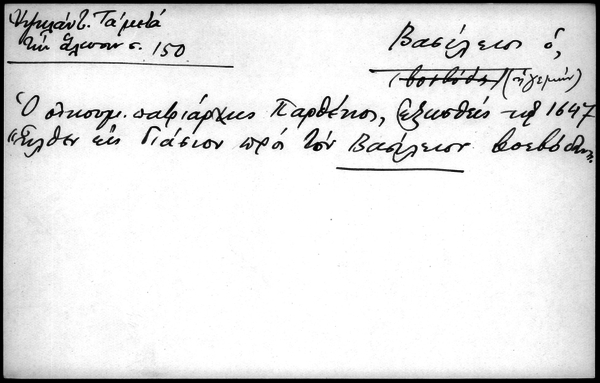 Ὑψηλάντ. Τὰ μετὰ
τὴν ἅλωσιν σ. 150
Βασίλειος ὁ,
(βοεβόδας) (ἡγεμών)
Ὁ οἰκουμ. πατριάρχης Παρθένιος, ἐξωσθεὶς τῷ 1647
ἦλθεν εἰς Γιάσιον πρὸς τὸν Βασίλειον βοεβόδαν.